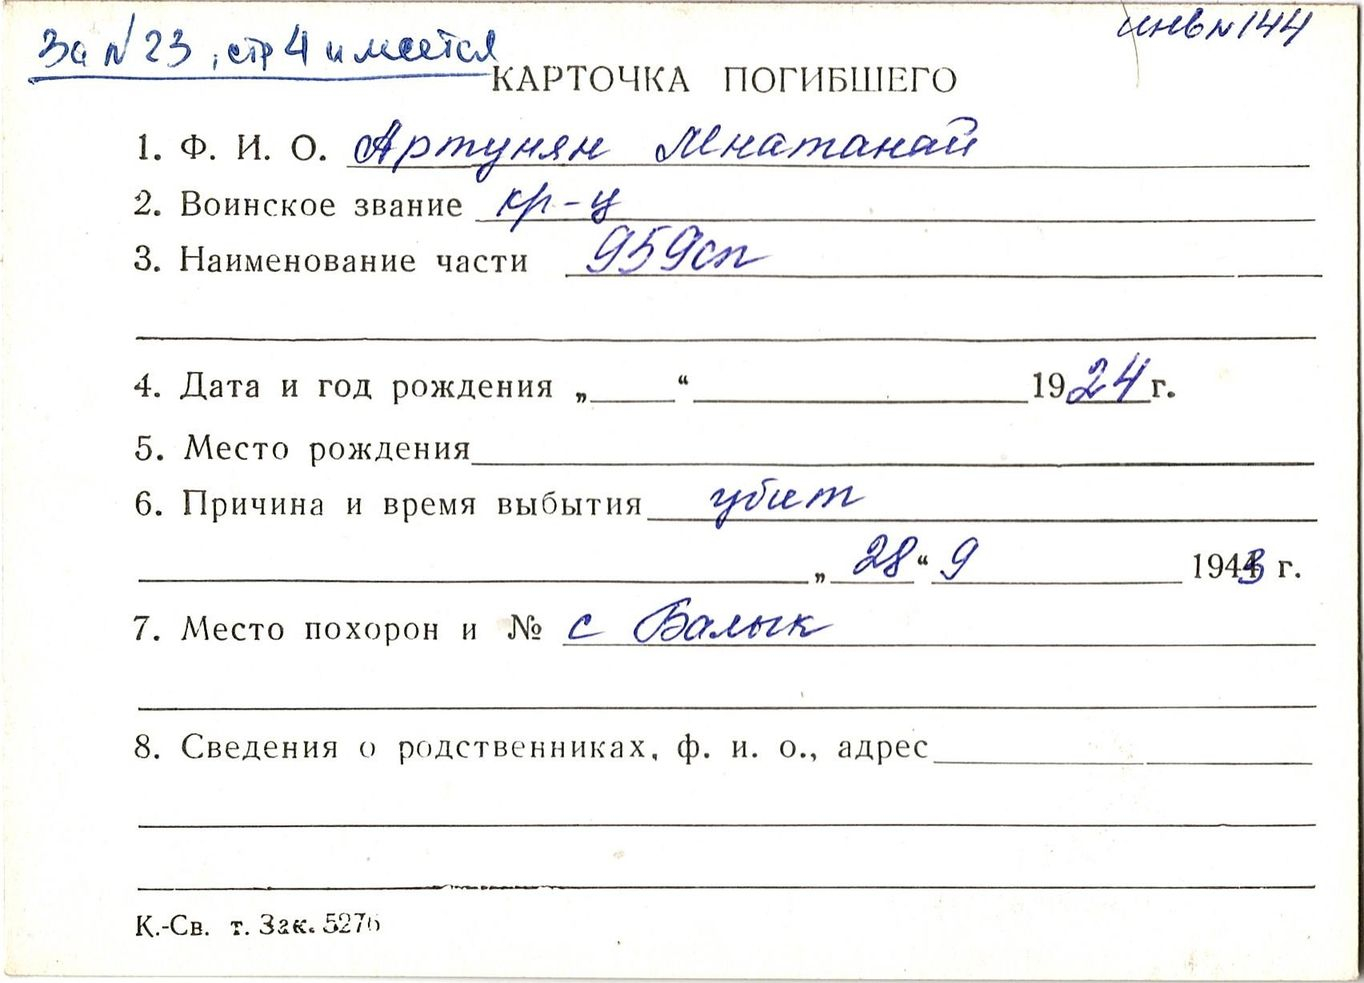 За N 23, стр 4 имеется
инв N 144
КАРТОЧКА ПОГИБШЕГО
1. Ф. И. О. Артунян Мнатанай
2. Воинское звание кр-ц
3. Наименование части 959сп
4. Дата и год рождения „ “ 1924 г.
5. Место рождения
6. Причина и время выбытия убит
„ 28 “ 9 1943 г.
7. Место похорон и № с Балык
8. Сведения о родственниках, ф. и. о., адрес
К.-Св. т. Зак. 5276